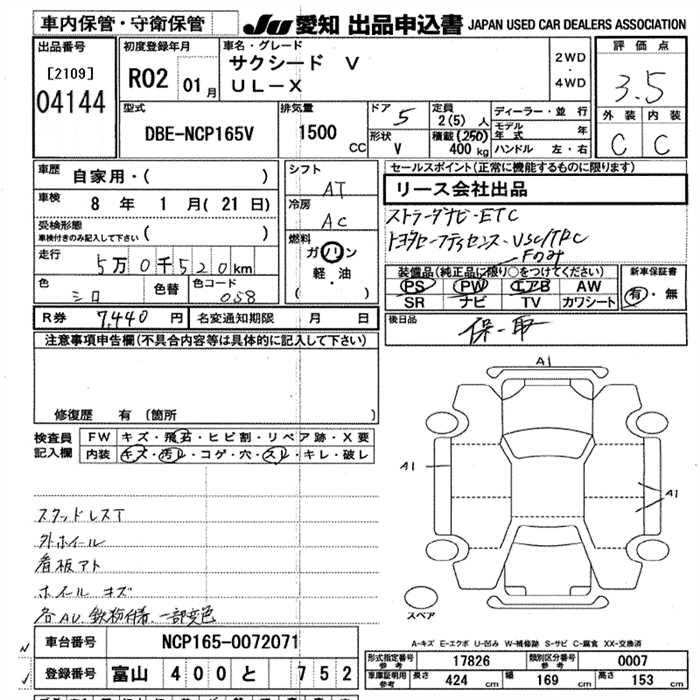 車内保管・守衛保管
JU 愛知 出品申込書 JAPAN USED CAR DEALERS ASSOCIATION
出品番号
[2109]
04144
初度登録年月
R02 01月
車名・グレード
サクシード V
UL-X
2WD
・
4WD
評価点
3.5
外装 内装
C C
型式
DBE-NCP165V
排気量
1500
CC
ドア 5
形状 V
定員 2(5)人
積載(250)
400kg
ディーラー・並行
モデル年式 年
ハンドル 左・右
車歴 自家用・( )
車検 8年 1月(21日)
受検形態
車検付きのみ記入して下さい ( )
走行 5万0千520km
色 シロ
色替
色コード 058
シフト
AT
冷房
AC
燃料
ガソリン
軽・油
( )
セールスポイント(正常に機能するものに限ります)
リース会社出品
ストラーダナビ・ETC
トヨタセーフティセンス・VSC/TRC
Fのみ
装備品(純正品に限り○をつけてください)
PS PW エアB AW
SR ナビ TV カワシート
新車保証書
有・無
後日品
保-取
R券 7,440円
名変通知期限 月 日
注意事項申告欄(不具合内容等は具体的に記入して下さい)
修復歴 有(箇所 )
検査員記入欄
FW キズ・飛石・ヒビ割・リペア跡・X要
内装 キズ・汚レ・コゲ・穴・スレ・キレ・破レ
スタッドレスT
外ホイール
看板アト
ホイール キズ
各AU、鉄物付着、一部変色
A1
A1
A1
スペア
A-キズ E-エクボ U-凹み W-補修跡 S-サビ C-腐食 XX-交換済
車台番号 NCP165-0072071
登録番号 富山 400 と 752
形式指定番号 参考 17826
類別区分番号 参考 0007
車庫証明用 参考
長さ 424 cm
幅 169 cm
高さ 153 cm